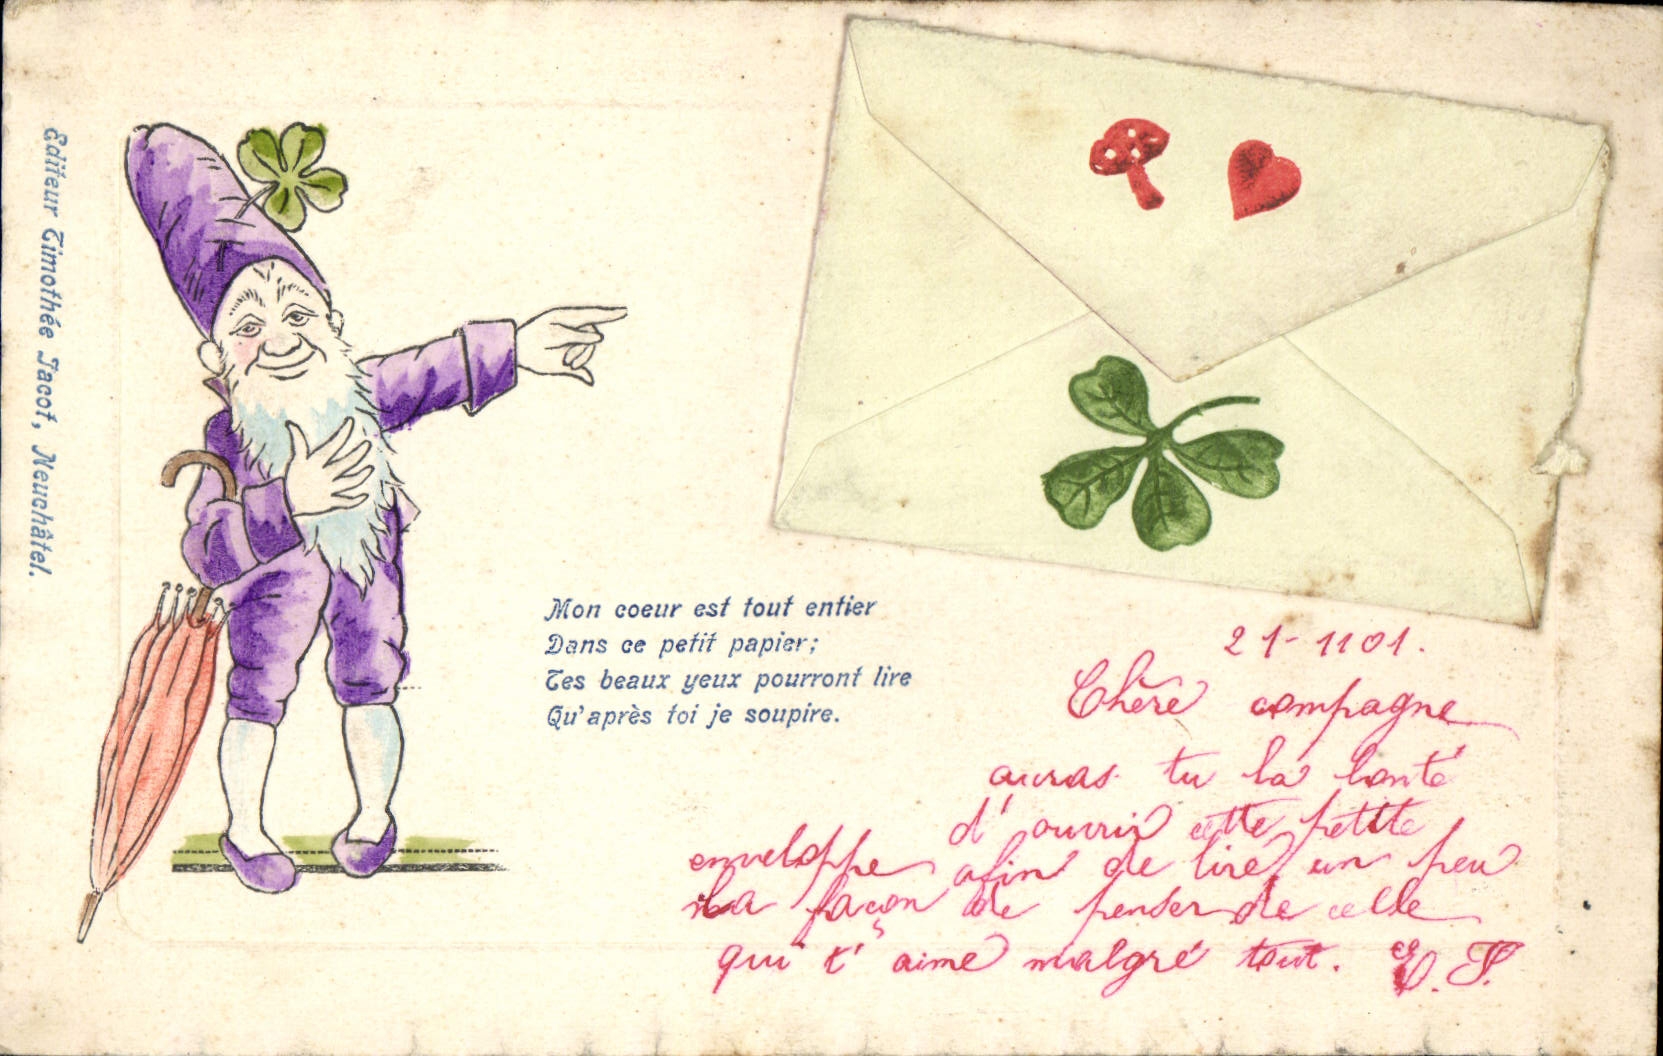 Editeur Timothée Jacot, Neuchâtel.
Mon coeur est tout entier
Dans ce petit papier;
Tes beaux yeux pourront lire
Qu'après toi je soupire.
21-1101.
Chère compagne
auras tu la bonté
d'ouvrir cette petite
enveloppe afin de lire un peu
la façon de penser de celle
qui t'aime malgré tout.